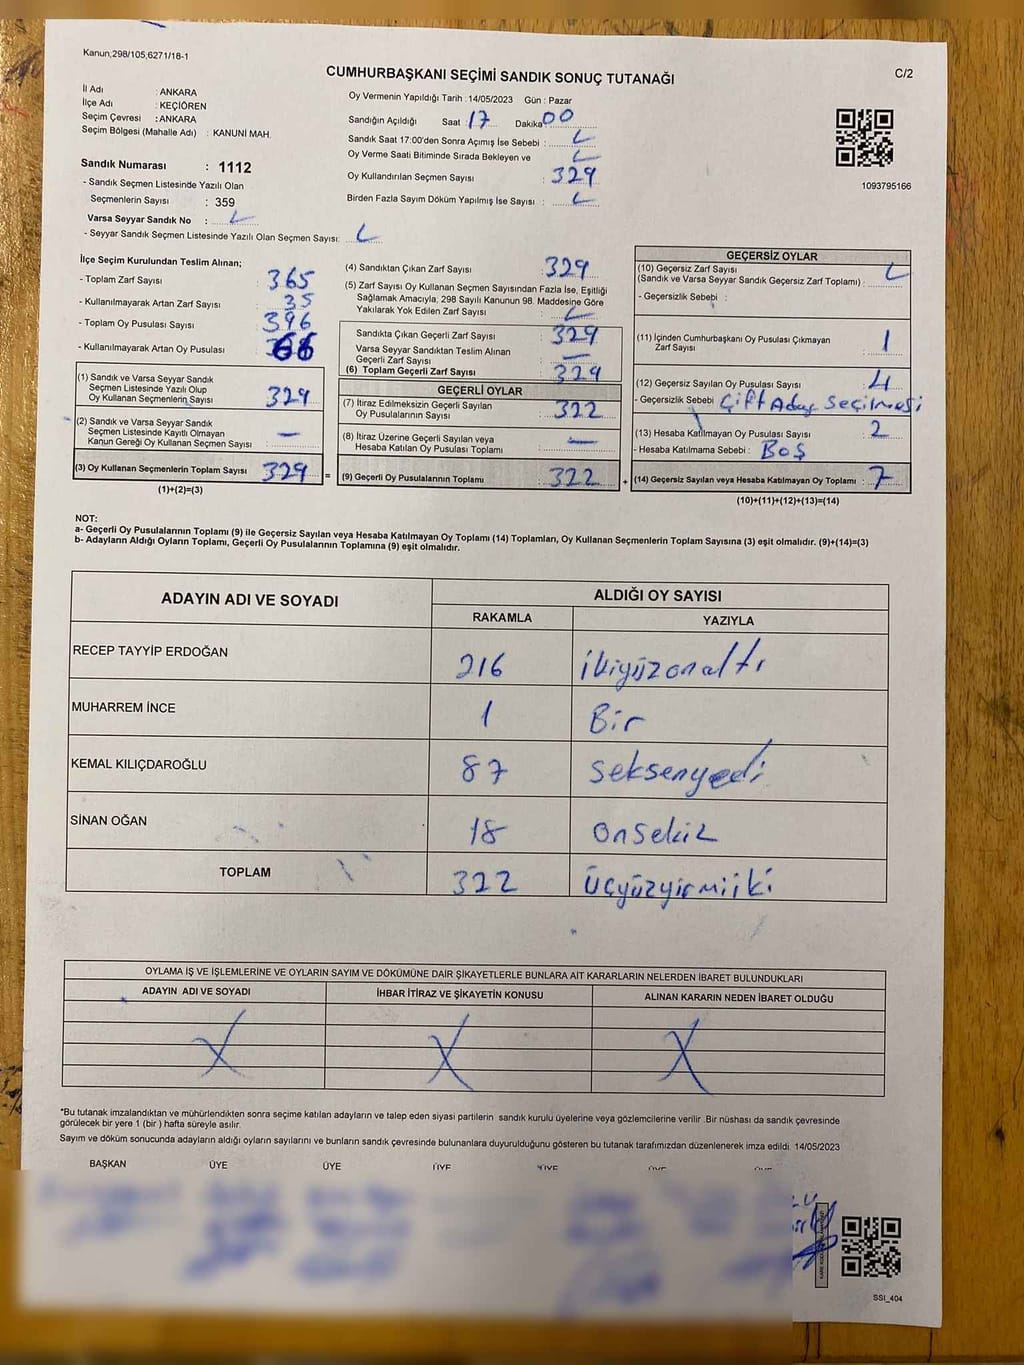 Kanun;298/105,6271/18-1
CUMHURBAŞKANI SEÇİMİ SANDIK SONUÇ TUTANAĞI
C/2
İl Adı : ANKARA
İlçe Adı : KEÇİÖREN
Seçim Çevresi : ANKARA
Seçim Bölgesi (Mahalle Adı) : KANUNİ MAH.
Sandık Numarası : 1112
- Sandık Seçmen Listesinde Yazılı Olan
Seçmenlerin Sayısı : 359
Varsa Seyyar Sandık No :
- Seyyar Sandık Seçmen Listesinde Yazılı Olan Seçmen Sayısı:
Oy Vermenin Yapıldığı Tarih : 14/05/2023 Gün : Pazar
Sandığın Açıldığı Saat 17 Dakika 00
Sandık Saat 17:00'den Sonra Açımış İse Sebebi :
Oy Verme Saati Bitiminde Sırada Bekleyen ve
Oy Kullandırılan Seçmen Sayısı : 329
Birden Fazla Sayım Döküm Yapılmış İse Sayısı :
1093795166
İlçe Seçim Kurulundan Teslim Alınan;
- Toplam Zarf Sayısı : 365
- Kullanılmayarak Artan Zarf Sayısı : 35
- Toplam Oy Pusulası Sayısı : 396
- Kullanılmayarak Artan Oy Pusulası : 66
(1) Sandık ve Varsa Seyyar Sandık
Seçmen Listesinde Yazılı Olup
Oy Kullanan Seçmenlerin Sayısı : 329
(2) Sandık ve Varsa Seyyar Sandık
Seçmen Listesinde Kayıtlı Olmayan
Kanun Gereği Oy Kullanan Seçmen Sayısı : —
(3) Oy Kullanan Seçmenlerin Toplam Sayısı : 329 =
(1)+(2)=(3)
(4) Sandıktan Çıkan Zarf Sayısı : 329
(5) Zarf Sayısı Oy Kullanan Seçmen Sayısından Fazla İse, Eşitliği
Sağlamak Amacıyla, 298 Sayılı Kanunun 98. Maddesine Göre
Yakılarak Yok Edilen Zarf Sayısı :
Sandıkta Çıkan Geçerli Zarf Sayısı : 329
Varsa Seyyar Sandıktan Teslim Alınan
Geçerli Zarf Sayısı : —
(6) Toplam Geçerli Zarf Sayısı : 329
GEÇERLİ OYLAR
(7) İtiraz Edilmeksizin Geçerli Sayılan
Oy Pusulalarının Sayısı : 322
(8) İtiraz Üzerine Geçerli Sayılan veya
Hesaba Katılan Oy Pusulası Toplamı : —
(9) Geçerli Oy Pusulalarının Toplamı : 322 +
GEÇERSİZ OYLAR
(10) Geçersiz Zarf Sayısı
(Sandık ve Varsa Seyyar Sandık Geçersiz Zarf Toplamı) :
- Geçersizlik Sebebi :
(11) İçinden Cumhurbaşkanı Oy Pusulası Çıkmayan
Zarf Sayısı : 1
(12) Geçersiz Sayılan Oy Pusulası Sayısı : 4
- Geçersizlik Sebebi : Çift Aday Seçilmesi
(13) Hesaba Katılmayan Oy Pusulası Sayısı : 2
- Hesaba Katılmama Sebebi : BOŞ
(14) Geçersiz Sayılan veya Hesaba Katılmayan Oy Toplamı : 7
(10)+(11)+(12)+(13)=(14)
NOT:
a- Geçerli Oy Pusulalarının Toplamı (9) ile Geçersiz Sayılan veya Hesaba Katılmayan Oy Toplamı (14) Toplamları, Oy Kullanan Seçmenlerin Toplam Sayısına (3) eşit olmalıdır. (9)+(14)=(3)
b- Adayların Aldığı Oyların Toplamı, Geçerli Oy Pusulalarının Toplamına (9) eşit olmalıdır.
ADAYIN ADI VE SOYADI
ALDIĞI OY SAYISI
RAKAMLA YAZIYLA
RECEP TAYYİP ERDOĞAN 216 ikiyüzonaltı
MUHARREM İNCE 1 Bir
KEMAL KILIÇDAROĞLU 87 seksenyedi
SİNAN OĞAN 18 onsekiz
TOPLAM 322 üçyüzyirmiiki
OYLAMA İŞ VE İŞLEMLERİNE VE OYLARIN SAYIM VE DÖKÜMÜNE DAİR ŞİKAYETLERLE BUNLARA AİT KARARLARIN NELERDEN İBARET BULUNDUKLARI
ADAYIN ADI VE SOYADI İHBAR İTİRAZ VE ŞİKAYETİN KONUSU ALINAN KARARIN NEDEN İBARET OLDUĞU
X X X
*Bu tutanak imzalandıktan ve mühürlendikten sonra seçime katılan adayların ve talep eden siyasi partilerin sandık kurulu üyelerine veya gözlemcilerine verilir. Bir nüshası da sandık çevresinde
görülecek bir yere 1 (bir) hafta süreyle asılır.
Sayım ve döküm sonucunda adayların aldığı oyların sayılarını ve bunların sandık çevresinde bulunanlara duyurulduğunu gösteren bu tutanak tarafımızdan düzenlenerek imza edildi. 14/05/2023
BAŞKAN ÜYE ÜYE ÜYE ÜYE ÜYE ÜYE
SSI_404